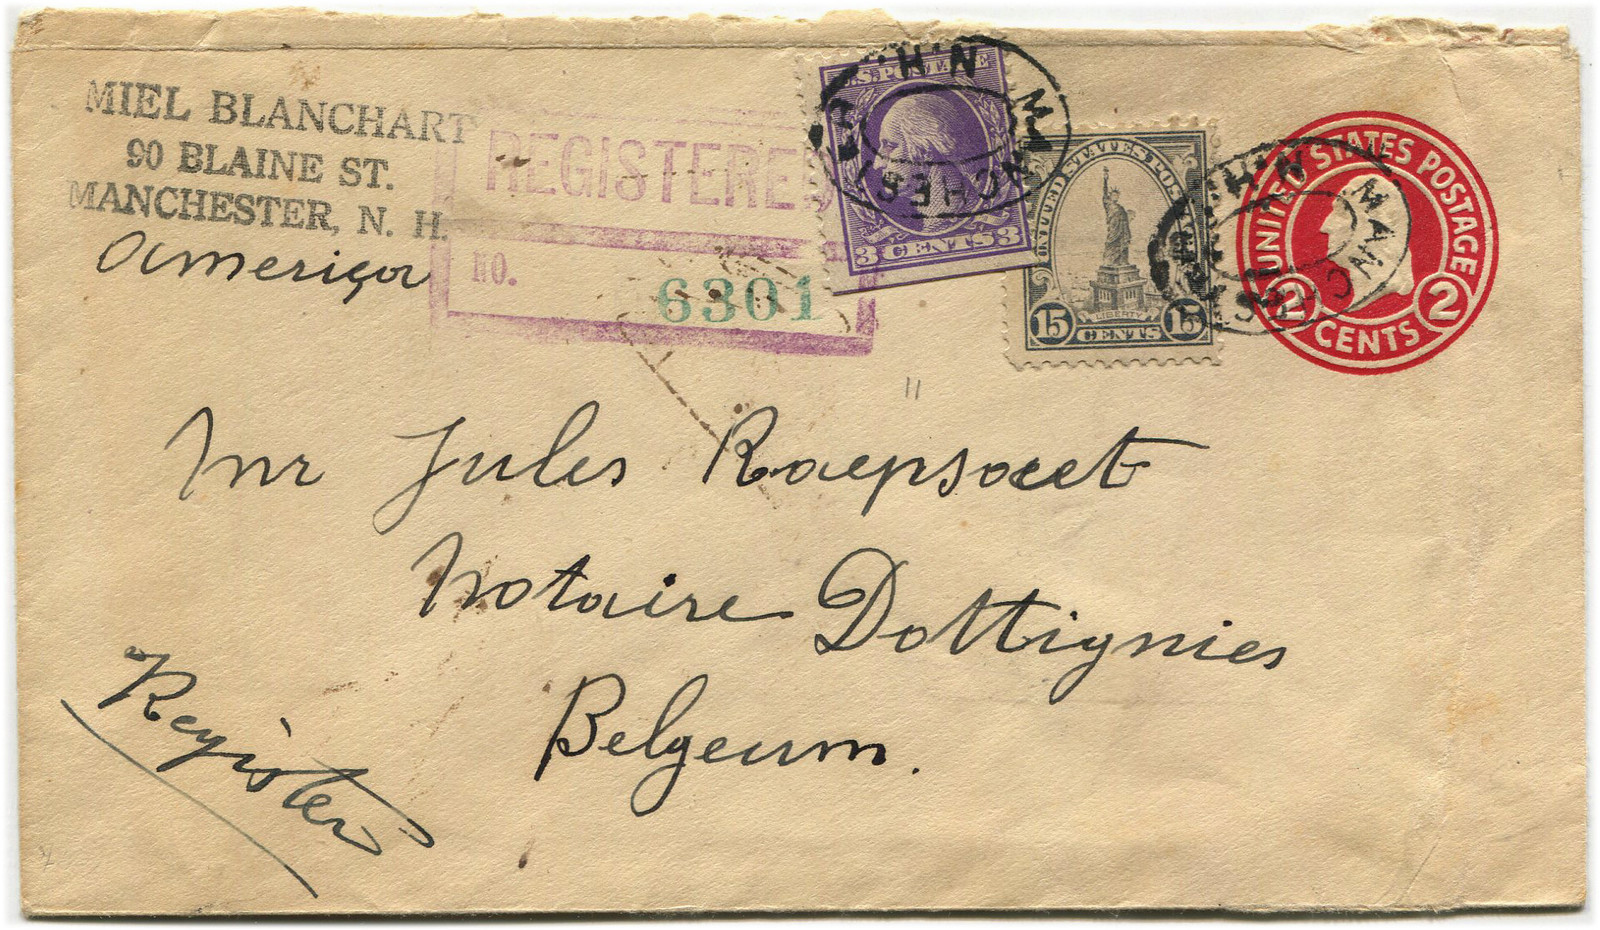 MIEL BLANCHART
90 BLAINE ST.
MANCHESTER, N. H.
America
REGISTERED
NO. 6301
U.S. POSTAGE
3 CENTS 3
MANCHESTER N.H.
UNITED STATES POSTAGE
LIBERTY
15 CENTS 15
MANCHESTER N.H.
UNITED STATES POSTAGE
2 CENTS 2
Mr Jules Raepsaet
Notaire Dottignies
Belgeum.
Register